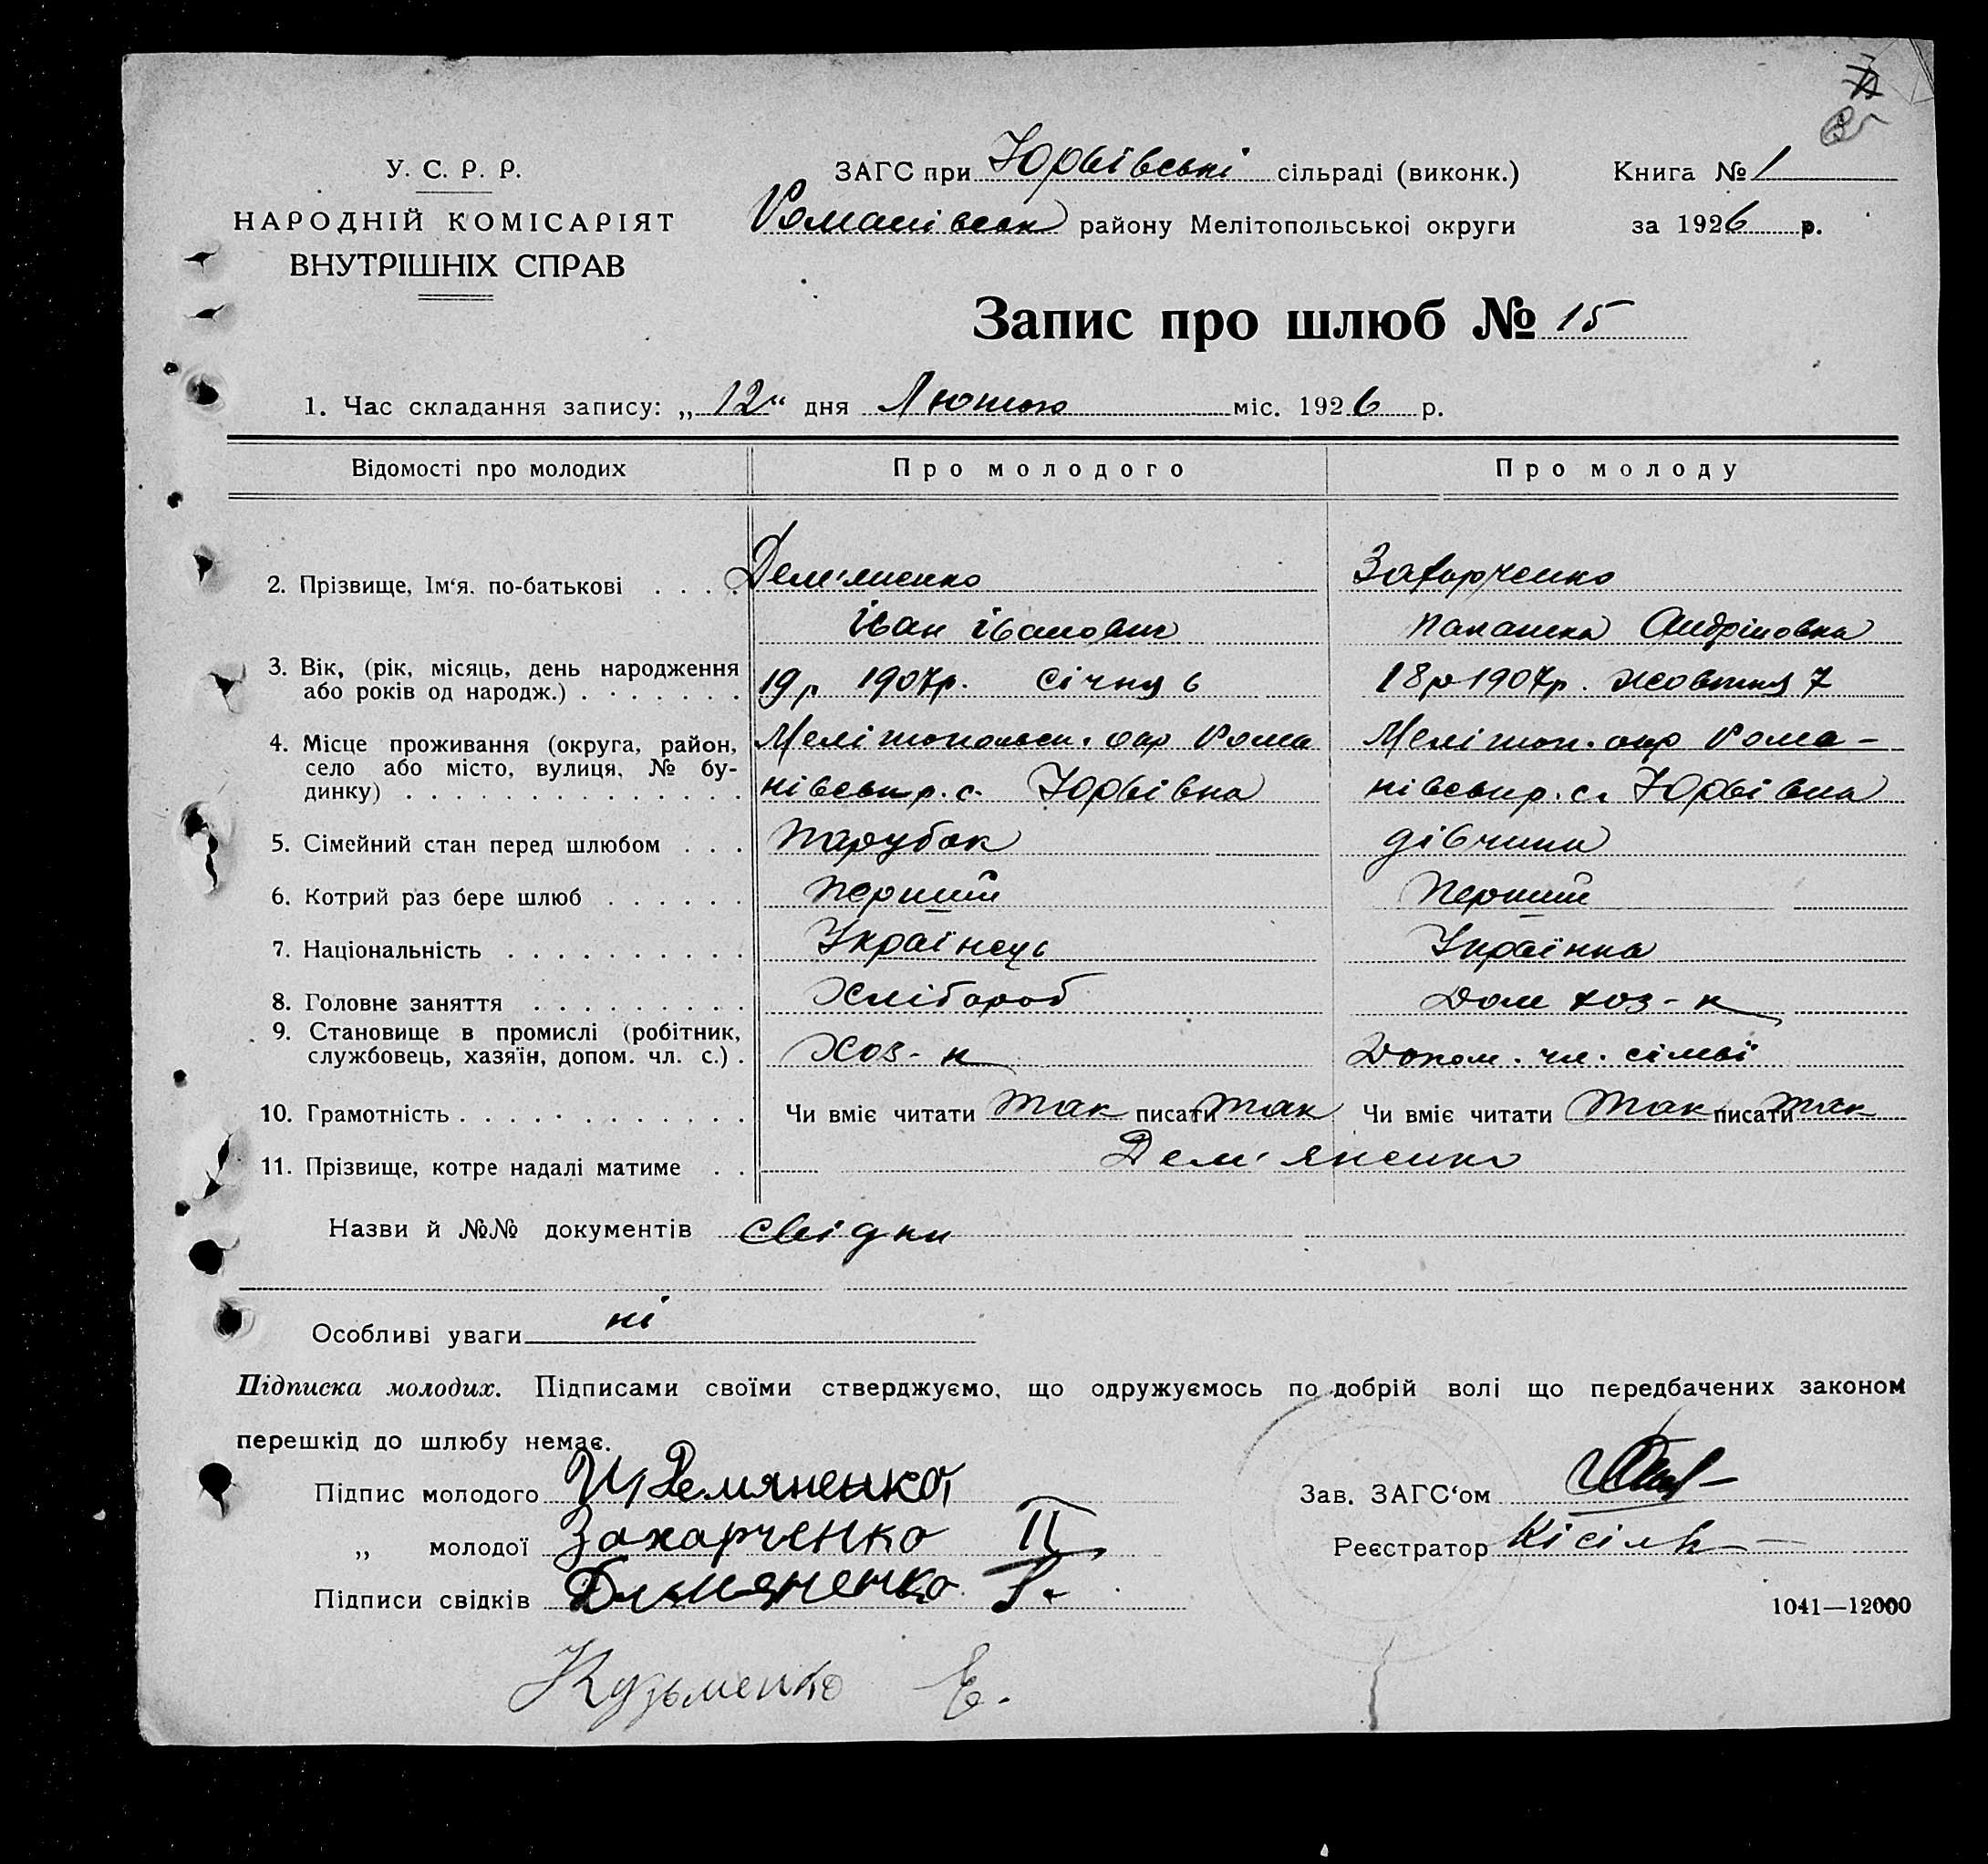 У. С. Р. Р.
НАРОДНІЙ КОМІСАРІЯТ
ВНУТРІШНІХ СПРАВ
ЗАГС при Юрьївські сільраді (виконк.)
Романівськ району Мелітопольської округи
Книга № 1
за 1926 р.
Запис про шлюб № 15
1. Час складання запису: „ 12 “ дня Лютого міс. 1926 р.
Відомості про молодих Про молодого Про молоду
2. Прізвище, Ім‘я. по-батькові . . . . Дем'яненко Захарченко
Іван Іванович Параска Андріеовна
3. Вік, (рік, місяць, день народження
або років од народж.) . . . . . . . 19 р 1907р. Січня 6 18 р 1907р. жовтня 7
4. Місце проживання (округа, район,
село або місто, вулиця, № бу-
динку) . . . . . . . . . . . . . .
Мелітопольськ. окр Рома Мелітоп. окр Рома-
нівськ р. с. Юрьівка нівськ р. с. Юрьівка
5. Сімейний стан перед шлюбом . . . Парубок дівчина
6. Котрий раз бере шлюб . . . . . . Перший Перший
7. Національність . . . . . . . . . . Українець Українка
8. Головне заняття . . . . . . . . . Хлібороб Дом хоз-к
9. Становище в промислі (робітник,
службовець, хазяїн, допом. чл. с.) . Хоз-к Допом. чл. сімьї
10. Грамотність . . . . . . . . . . . . Чи вміє читати Так писати Так Чи вміє читати Так писати Так
11. Прізвище, котре надалі матиме . . Дем'яненко
Назви й №№ документів свідки
Особливі уваги ні
Підписка молодих. Підписами своїми стверджуємо, що одружуємось по добрій волі що передбачених законом
перешкід до шлюбу немає.
Підпис молодого И Демяненко Зав. ЗАГС‘ом
„ молодої Захарченко П Реєстратор Кісіль
Підписи свідків Демяненко
1041—12000
Кузьменко Е.